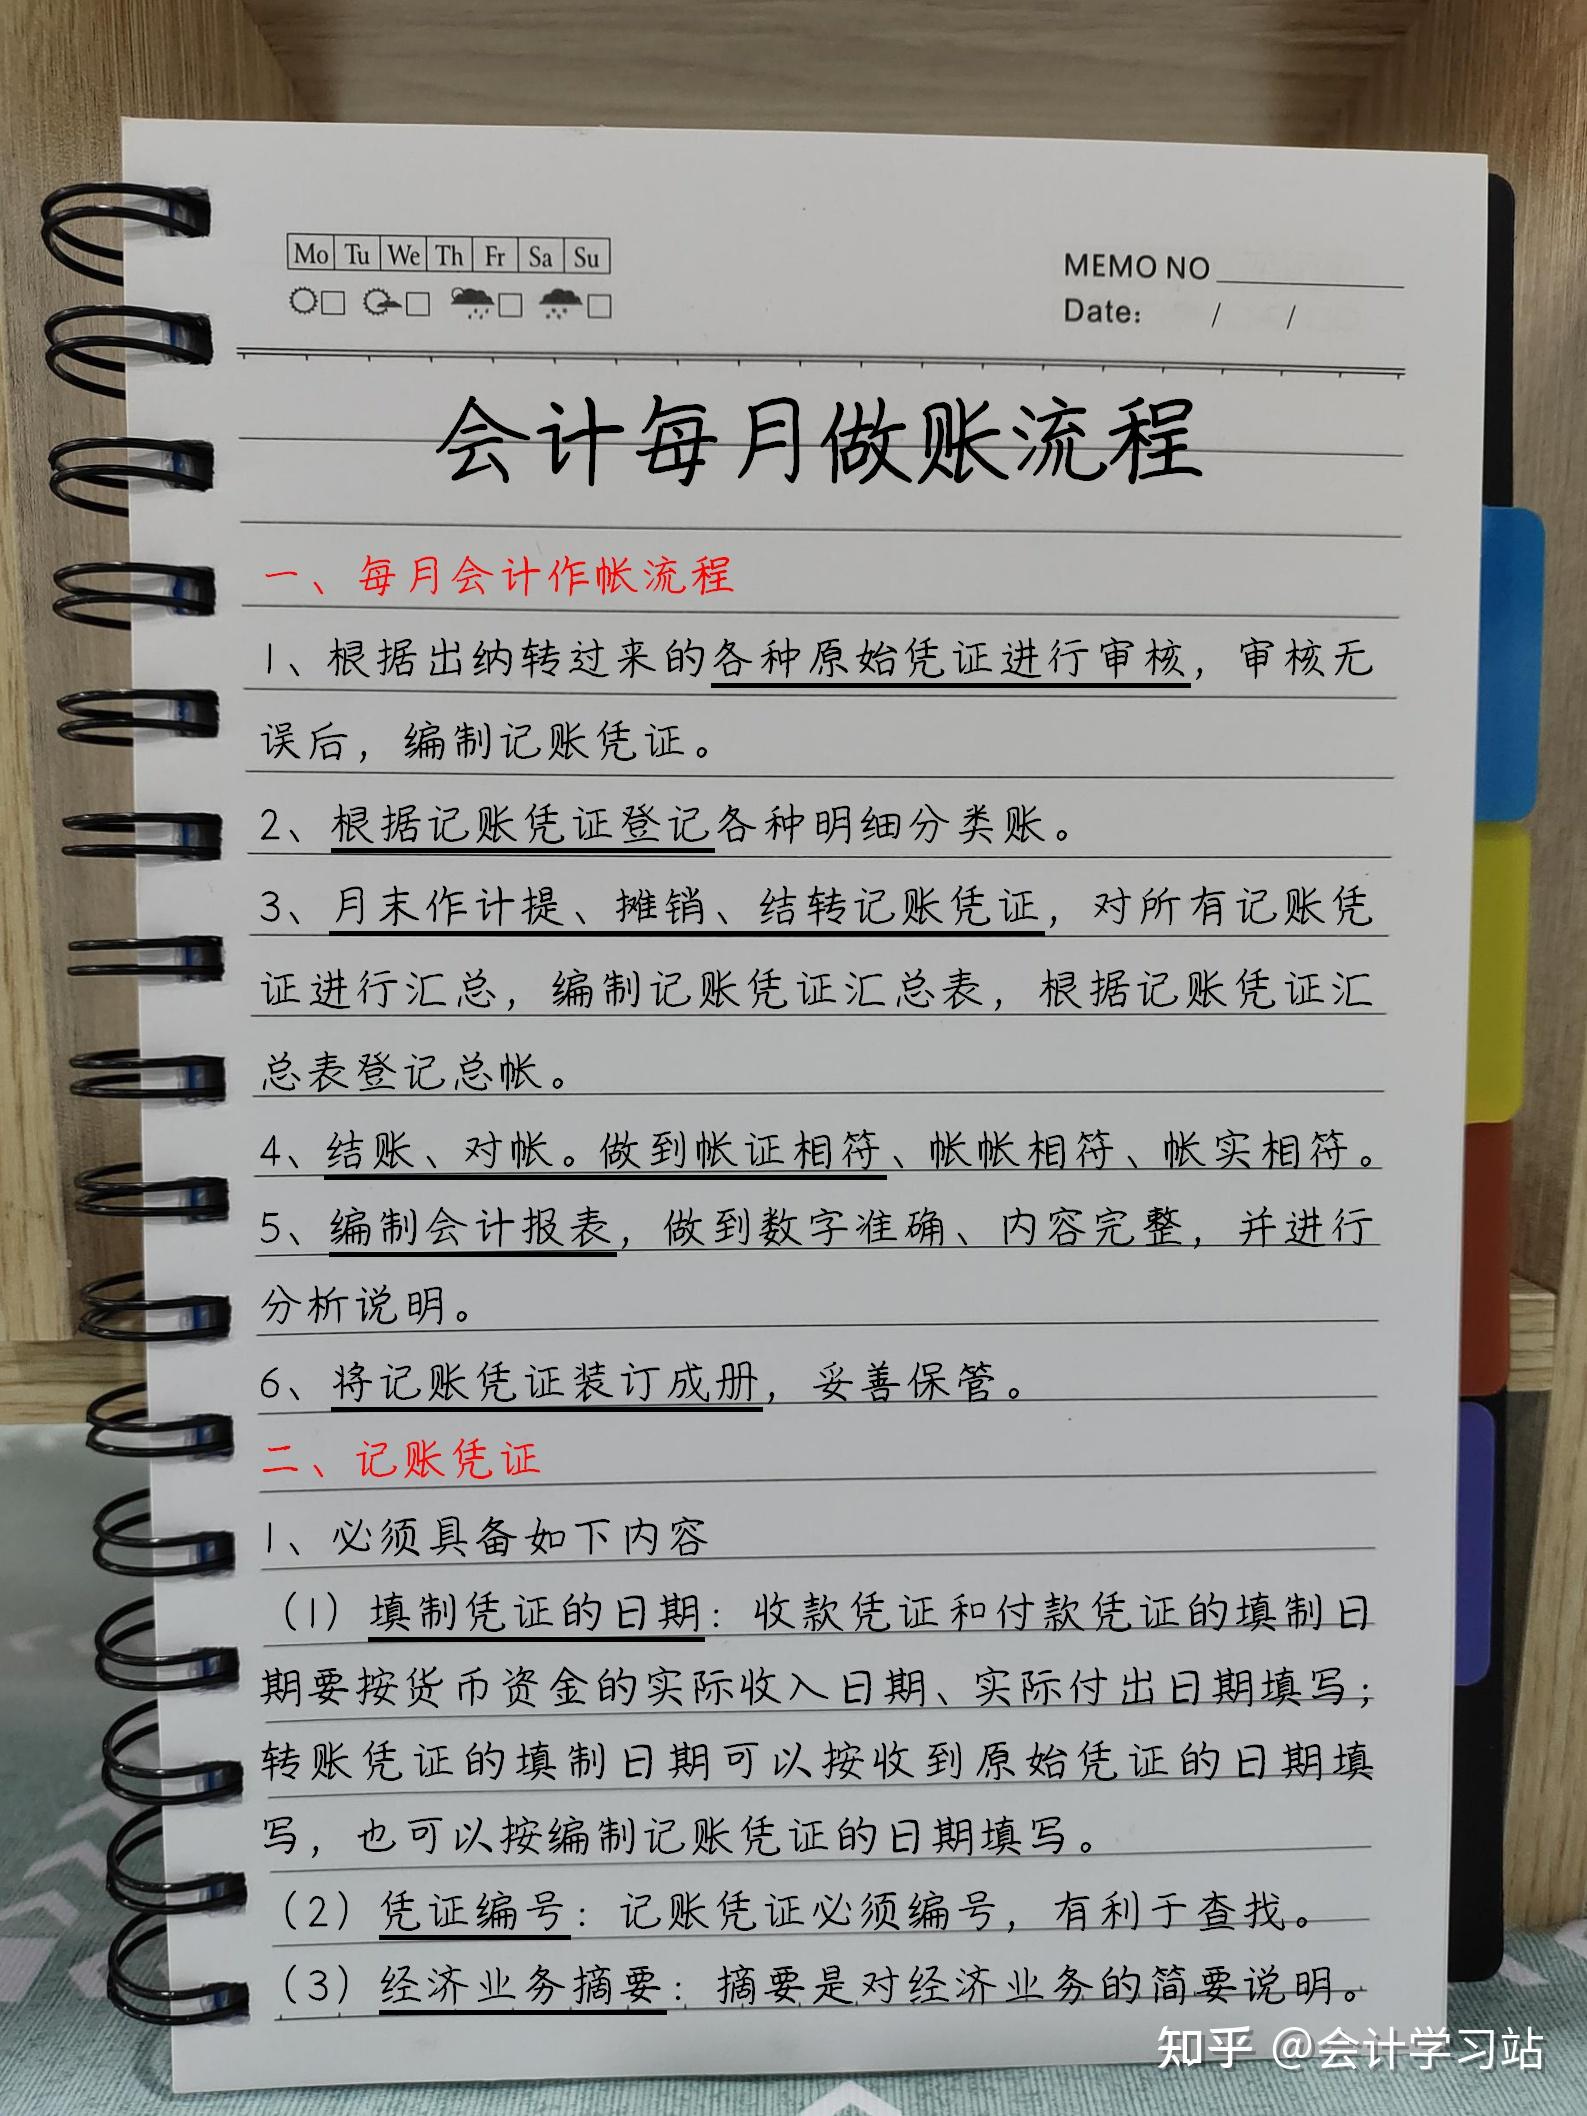 Mo Tu We Th Fr Sa Su
MEMO NO
Date: / /
会计每月做账流程
一、每月会计作帐流程
1、根据出纳转过来的各种原始凭证进行审核，审核无
误后，编制记账凭证。
2、根据记账凭证登记各种明细分类账。
3、月末作计提、摊销、结转记账凭证，对所有记账凭
证进行汇总，编制记账凭证汇总表，根据记账凭证汇
总表登记总帐。
4、结账、对帐。做到帐证相符、帐帐相符、帐实相符。
5、编制会计报表，做到数字准确、内容完整，并进行
分析说明。
6、将记账凭证装订成册，妥善保管。
二、记账凭证
1、必须具备如下内容
（1）填制凭证的日期：收款凭证和付款凭证的填制日
期要按货币资金的实际收入日期、实际付出日期填写；
转账凭证的填制日期可以按收到原始凭证的日期填
写，也可以按编制记账凭证的日期填写。
（2）凭证编号：记账凭证必须编号，有利于查找。
（3）经济业务摘要：摘要是对经济业务的简要说明。
知乎 @会计学习站